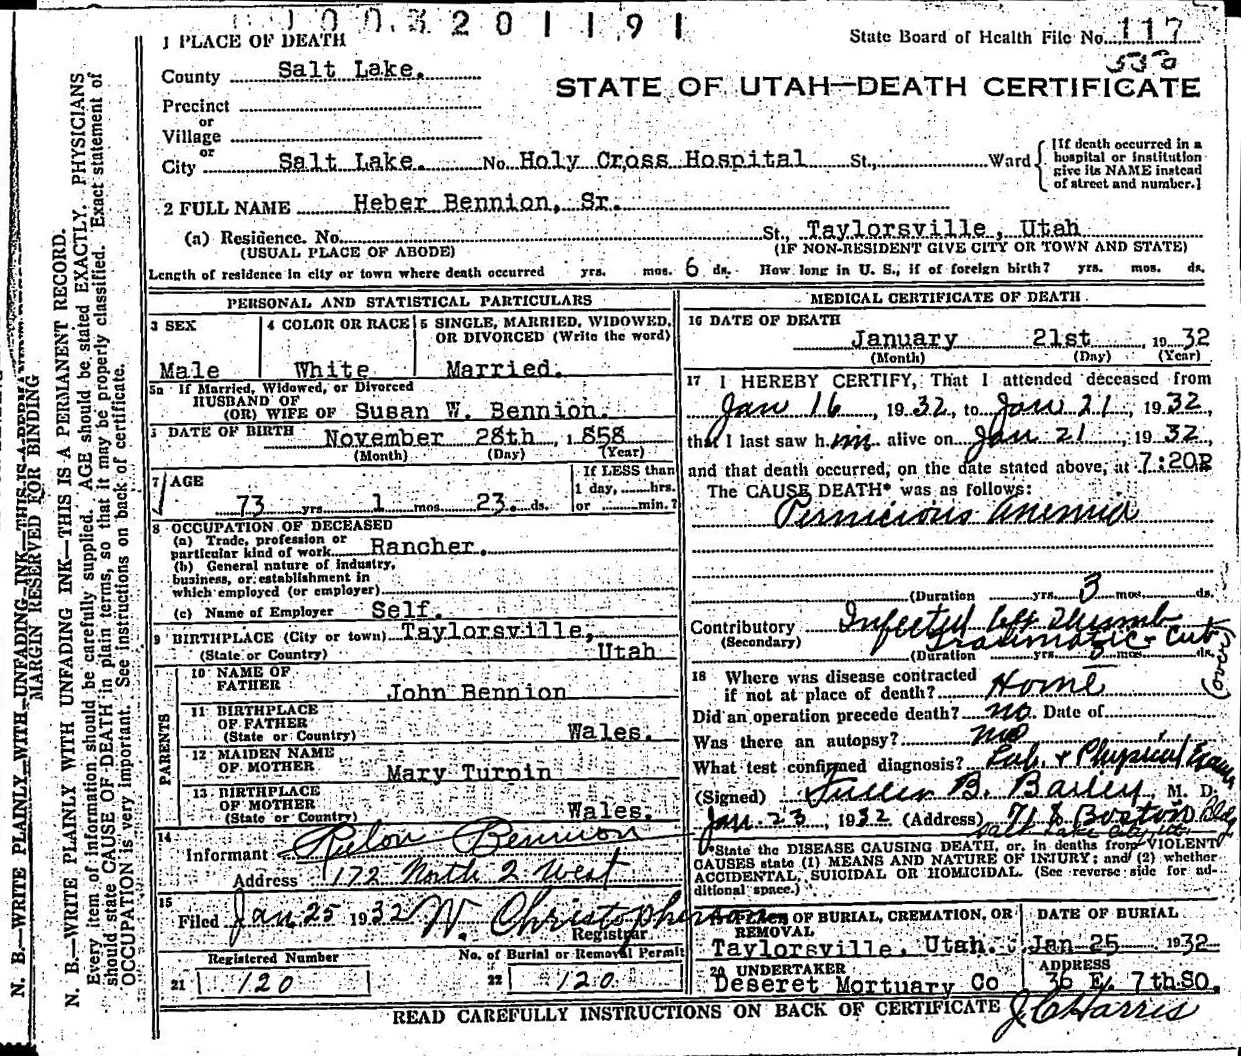 1003201191
1 PLACE OF DEATH
State Board of Health File No. 117
530
County Salt Lake.
STATE OF UTAH—DEATH CERTIFICATE
Precinct
or
Village
or
City Salt Lake. No Holy Cross Hospital St., Ward
[If death occurred in a hospital or institution give its NAME instead of street and number.]
2 FULL NAME Heber Bennion, Sr.
(a) Residence. No. St., Taylorsville, Utah
(USUAL PLACE OF ABODE) (IF NON-RESIDENT GIVE CITY OR TOWN AND STATE)
Length of residence in city or town where death occurred yrs. mos. 6 ds. How long in U. S., if of foreign birth? yrs. mos. ds.
PERSONAL AND STATISTICAL PARTICULARS
3 SEX
Male
4 COLOR OR RACE
White
5 SINGLE, MARRIED, WIDOWED, OR DIVORCED (Write the word)
Married.
5a If Married, Widowed, or Divorced
HUSBAND OF
(OR) WIFE OF Susan W. Bennion.
DATE OF BIRTH November 28th, 1858
(Month) (Day) (Year)
7 AGE
73 yrs 1 mos 23. ds.
If LESS than
1 day, hrs.
or min.?
8 OCCUPATION OF DECEASED
(a) Trade, profession or
particular kind of work Rancher.
(b) General nature of industry,
business, or establishment in
which employed (or employer)
(c) Name of Employer Self.
9 BIRTHPLACE (City or town) Taylorsville,
(State or Country) Utah
PARENTS
10 NAME OF
FATHER John Bennion
11 BIRTHPLACE
OF FATHER
(State or Country) Wales.
12 MAIDEN NAME
OF MOTHER Mary Turpin
13 BIRTHPLACE
OF MOTHER
(State or Country) Wales.
14
Informant Rulon Bennion
Address 172 North 2 West
15
Filed Jan. 25 1932 W. Christopherson
Registrar
Registered Number
21 120
No. of Burial or Removal Permit
22 120
MEDICAL CERTIFICATE OF DEATH
16 DATE OF DEATH
January 21st, 1932
(Month) (Day) (Year)
17 I HEREBY CERTIFY, That I attended deceased from
Jan 16, 1932, to Jan 21, 1932,
that I last saw him alive on Jan 21, 1932,
and that death occurred, on the date stated above, at 7:20P
The CAUSE DEATH* was as follows:
Pernicious anemia
(Duration yrs. 3 mos. ds.
Contributory Infected left Thumb
(Secondary) Traumatic - Cut
(Duration yrs. 3 mos. ds.
(over)
18 Where was disease contracted
if not at place of death? Home
Did an operation precede death? no. Date of
Was there an autopsy? no
What test confirmed diagnosis? Lab. & Physical Exam
(Signed) Fuller B. Bailey, M. D.
Jan 23, 1932 (Address) 718 Boston Bldg
Salt Lake City, Ut.
*State the DISEASE CAUSING DEATH, or, in deaths from VIOLENT
CAUSES state (1) MEANS AND NATURE OF INJURY; and (2) whether
ACCIDENTAL, SUICIDAL OR HOMICIDAL. (See reverse side for ad-
ditional space.)
OF BURIAL, CREMATION, OR
REMOVAL
Taylorsville, Utah.
DATE OF BURIAL
Jan 25 1932
20 UNDERTAKER
Deseret Mortuary Co
ADDRESS
36 E. 7th SO.
READ CAREFULLY INSTRUCTIONS ON BACK OF CERTIFICATE
J C Harris
N. B.—WRITE PLAINLY WITH UNFADING INK—THIS IS A PERMANENT RECORD.
MARGIN RESERVED FOR BINDING
N. B.—WRITE PLAINLY WITH UNFADING INK—THIS IS A PERMANENT RECORD.
Every item of information should be carefully supplied. AGE should be stated EXACTLY. PHYSICIANS
should state CAUSE OF DEATH in plain terms, so that it may be properly classified. Exact statement of
OCCUPATION is very important. See instructions on back of certificate.